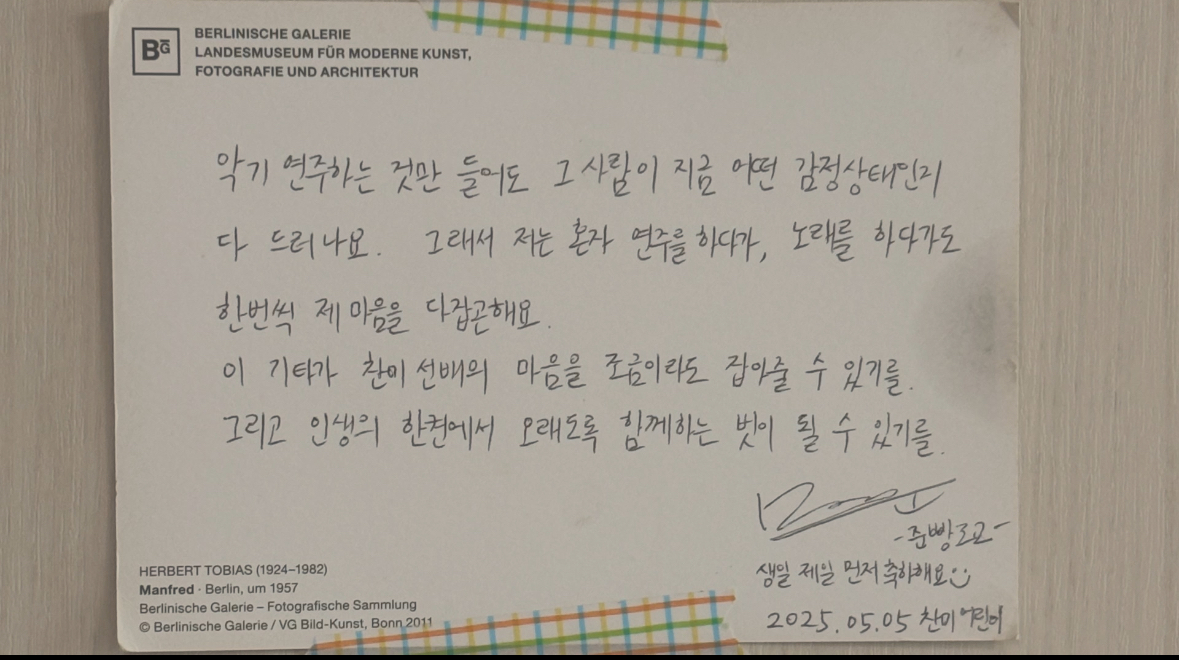 BG
BERLINISCHE GALERIE
LANDESMUSEUM FÜR MODERNE KUNST,
FOTOGRAFIE UND ARCHITEKTUR
악기 연주하는 것만 들어도 그 사람이 지금 어떤 감정상태인지
다 드러나요. 그래서 저는 혼자 연주를 하다가, 노래를 하다가도
한번씩 제 마음을 다잡곤해요.
이 기타가 찬미선배의 마음을 조금이라도 잡아줄 수 있기를.
그리고 인생의 한켠에서 오래도록 함께하는 벗이 될 수 있기를.
-준빵로고-
생일 제일 먼저 축하해요
2025.05.05 찬미어린이
HERBERT TOBIAS (1924–1982)
Manfred · Berlin, um 1957
Berlinische Galerie – Fotografische Sammlung
© Berlinische Galerie / VG Bild-Kunst, Bonn 2011